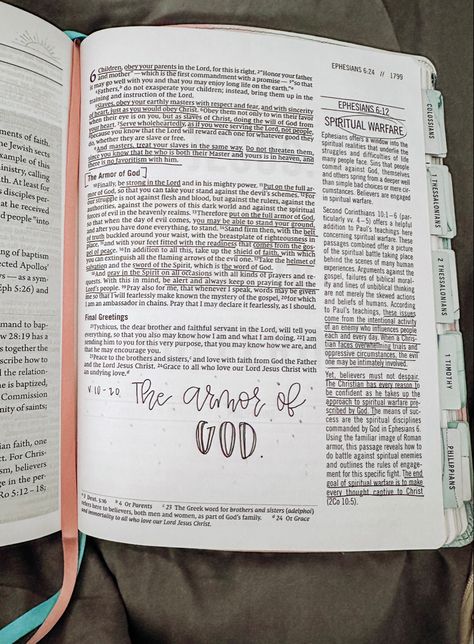 ments of faith.
he Jewish sects
example of this
ministry, calling
th. At least for
s disciples per-
at he received
d people "into
ng of baptism
ected Apollos'
— as a sym-
ph 5:26) and
mmand to bap-
w 28:19 has a
s together the
scribe how to
d the relation-
he is baptized,
Commission
nity of saints
ian faith, one
t. For Chris-
sm, believers
ge in the per-
Ro 5:12–18;
EPHESIANS 6:24 // 1799
6 Children, obey your parents in the Lord, for this is right. ²"Honor your father
and mother" — which is the first commandment with a promise — ³"so that
it may go well with you and that you may enjoy long life on the earth."ᵃ
⁴Fathers,ᵇ do not exasperate your children; instead, bring them up in the
training and instruction of the Lord.
⁵Slaves, obey your earthly masters with respect and fear, and with sincerity
of heart, just as you would obey Christ. ⁶Obey them not only to win their favor
when their eye is on you, but as slaves of Christ, doing the will of God from
your heart. ⁷Serve wholeheartedly, as if you were serving the Lord, not people,
⁸because you know that the Lord will reward each one for whatever good they
do, whether they are slave or free.
⁹And masters, treat your slaves in the same way. Do not threaten them,
since you know that he who is both their Master and yours is in heaven, and
there is no favoritism with him.
The Armor of God
¹⁰Finally, be strong in the Lord and in his mighty power. ¹¹Put on the full ar-
mor of God, so that you can take your stand against the devil's schemes. ¹²For
our struggle is not against flesh and blood, but against the rulers, against the
authorities, against the powers of this dark world and against the spiritual
forces of evil in the heavenly realms. ¹³Therefore put on the full armor of God,
so that when the day of evil comes, you may be able to stand your ground,
and after you have done everything, to stand. ¹⁴Stand firm then, with the belt
of truth buckled around your waist, with the breastplate of righteousness in
place, ¹⁵and with your feet fitted with the readiness that comes from the gos-
pel of peace. ¹⁶In addition to all this, take up the shield of faith, with which
you can extinguish all the flaming arrows of the evil one. ¹⁷Take the helmet of
salvation and the sword of the Spirit, which is the word of God.
¹⁸And pray in the Spirit on all occasions with all kinds of prayers and re-
quests. With this in mind, be alert and always keep on praying for all the
Lord's people. ¹⁹Pray also for me, that whenever I speak, words may be given
me so that I will fearlessly make known the mystery of the gospel, ²⁰for which
I am an ambassador in chains. Pray that I may declare it fearlessly, as I should.
Final Greetings
²¹Tychicus, the dear brother and faithful servant in the Lord, will tell you
everything, so that you also may know how I am and what I am doing. ²²I am
sending him to you for this very purpose, that you may know how we are, and
that he may encourage you.
²³Peace to the brothers and sisters,ᶜ and love with faith from God the Father
and the Lord Jesus Christ. ²⁴Grace to all who love our Lord Jesus Christ with
an undying love.ᵈ
V. 10-20 The armor of
GOD.
ᵃ 3 Deut. 5:16 ᵇ 4 Or Parents ᶜ 23 The Greek word for brothers and sisters (adelphoi)
refers here to believers, both men and women, as part of God's family. ᵈ 24 Or Grace
and immortality to all who love our Lord Jesus Christ.
EPHESIANS 6:12
SPIRITUAL WARFARE
Ephesians offers a window into
the spiritual realities that underlie the
struggles and difficulties of life
many people face. Sins that people
commit against God, themselves
and others spring from a deeper well
than simple bad choices or mere cir-
cumstances. Believers are engaged
in spiritual warfare.
Second Corinthians 10:1–6 (par-
ticularly vv. 4–5) offers a helpful
addition to Paul's teachings here
concerning spiritual warfare. These
passages combined offer a picture
of the spiritual battle taking place
behind the scenes of many human
experiences. Arguments against the
gospel, failures of biblical moral-
ity and lines of unbiblical thinking
are not merely the skewed actions
and beliefs of humans. According
to Paul's teachings, these issues
come from the intentional activity
of an enemy who influences people
each and every day. When a Chris-
tian faces overwhelming trials and
oppressive circumstances, the evil
one may be intimately involved.
Yet, believers must not despair.
The Christian has every reason to
be confident as he takes up the
approach to spiritual warfare pre-
scribed by God. The means of suc-
cess are the spiritual disciplines
commanded by God in Ephesians 6.
Using the familiar image of Roman
armor, this passage reveals how to
do battle against spiritual enemies
and outlines the rules of engage-
ment for this specific fight. The end
goal of spiritual warfare is to make
every thought captive to Christ
(2Co 10:5).
COLOSSIANS
1 THESSALONIANS
2 THESSALONIANS
1 TIMOTHY